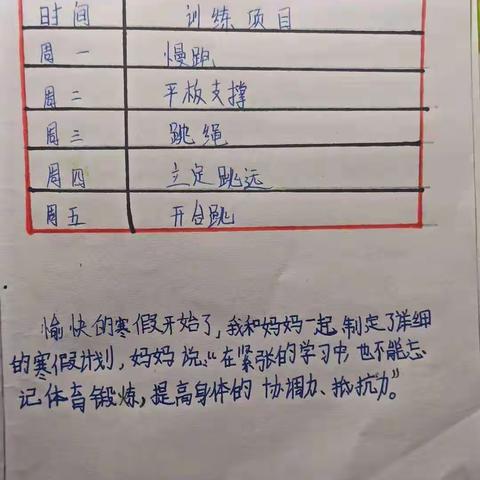 时间 训练项目
周一 慢跑
周二 平板支撑
周三 跳绳
周四 立定跳远
周五 开合跳
愉快的寒假开始了,我和妈妈一起制定了详细
的寒假计划,妈妈说:“在紧张的学习中也不能忘
记体育锻炼,提高身体的协调力、抵抗力。”